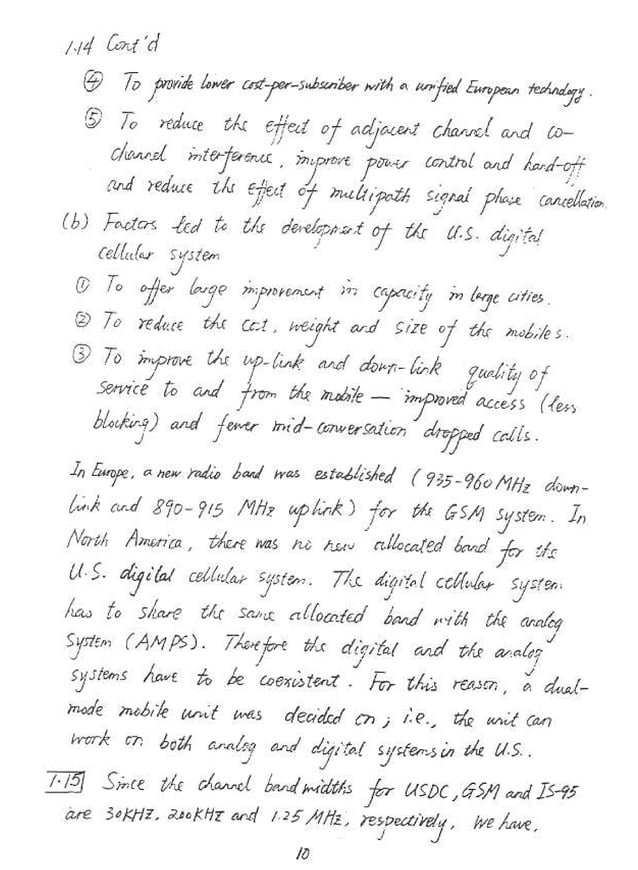 1.14 Cont'd
④ To provide lower cost-per-subscriber with a unified European technology.
⑤ To reduce the effect of adjacent channel and co-
channel interference, improve power control and hand-off
and reduce the effect of multipath signal phase cancellation.
(b) Factors led to the development of the U.S. digital
cellular system
① To offer large improvement in capacity in large cities.
② To reduce the cost, weight and size of the mobiles.
③ To improve the up-link and down-link quality of
service to and from the mobile — improved access (less
blocking) and fewer mid-conversation dropped calls.
In Europe, a new radio band was established (935-960 MHz down-
link and 890-915 MHz uplink) for the GSM system. In
North America, there was no new allocated band for the
U.S. digital cellular system. The digital cellular system
has to share the same allocated band with the analog
system (AMPS). Therefore the digital and the analog
systems have to be coexistent. For this reason, a dual-
mode mobile unit was decided on; i.e., the unit can
work on both analog and digital systems in the U.S..
1.15 Since the channel bandwidths for USDC, GSM and IS-95
are 30KHZ, 200KHZ and 1.25 MHz, respectively, we have,
10